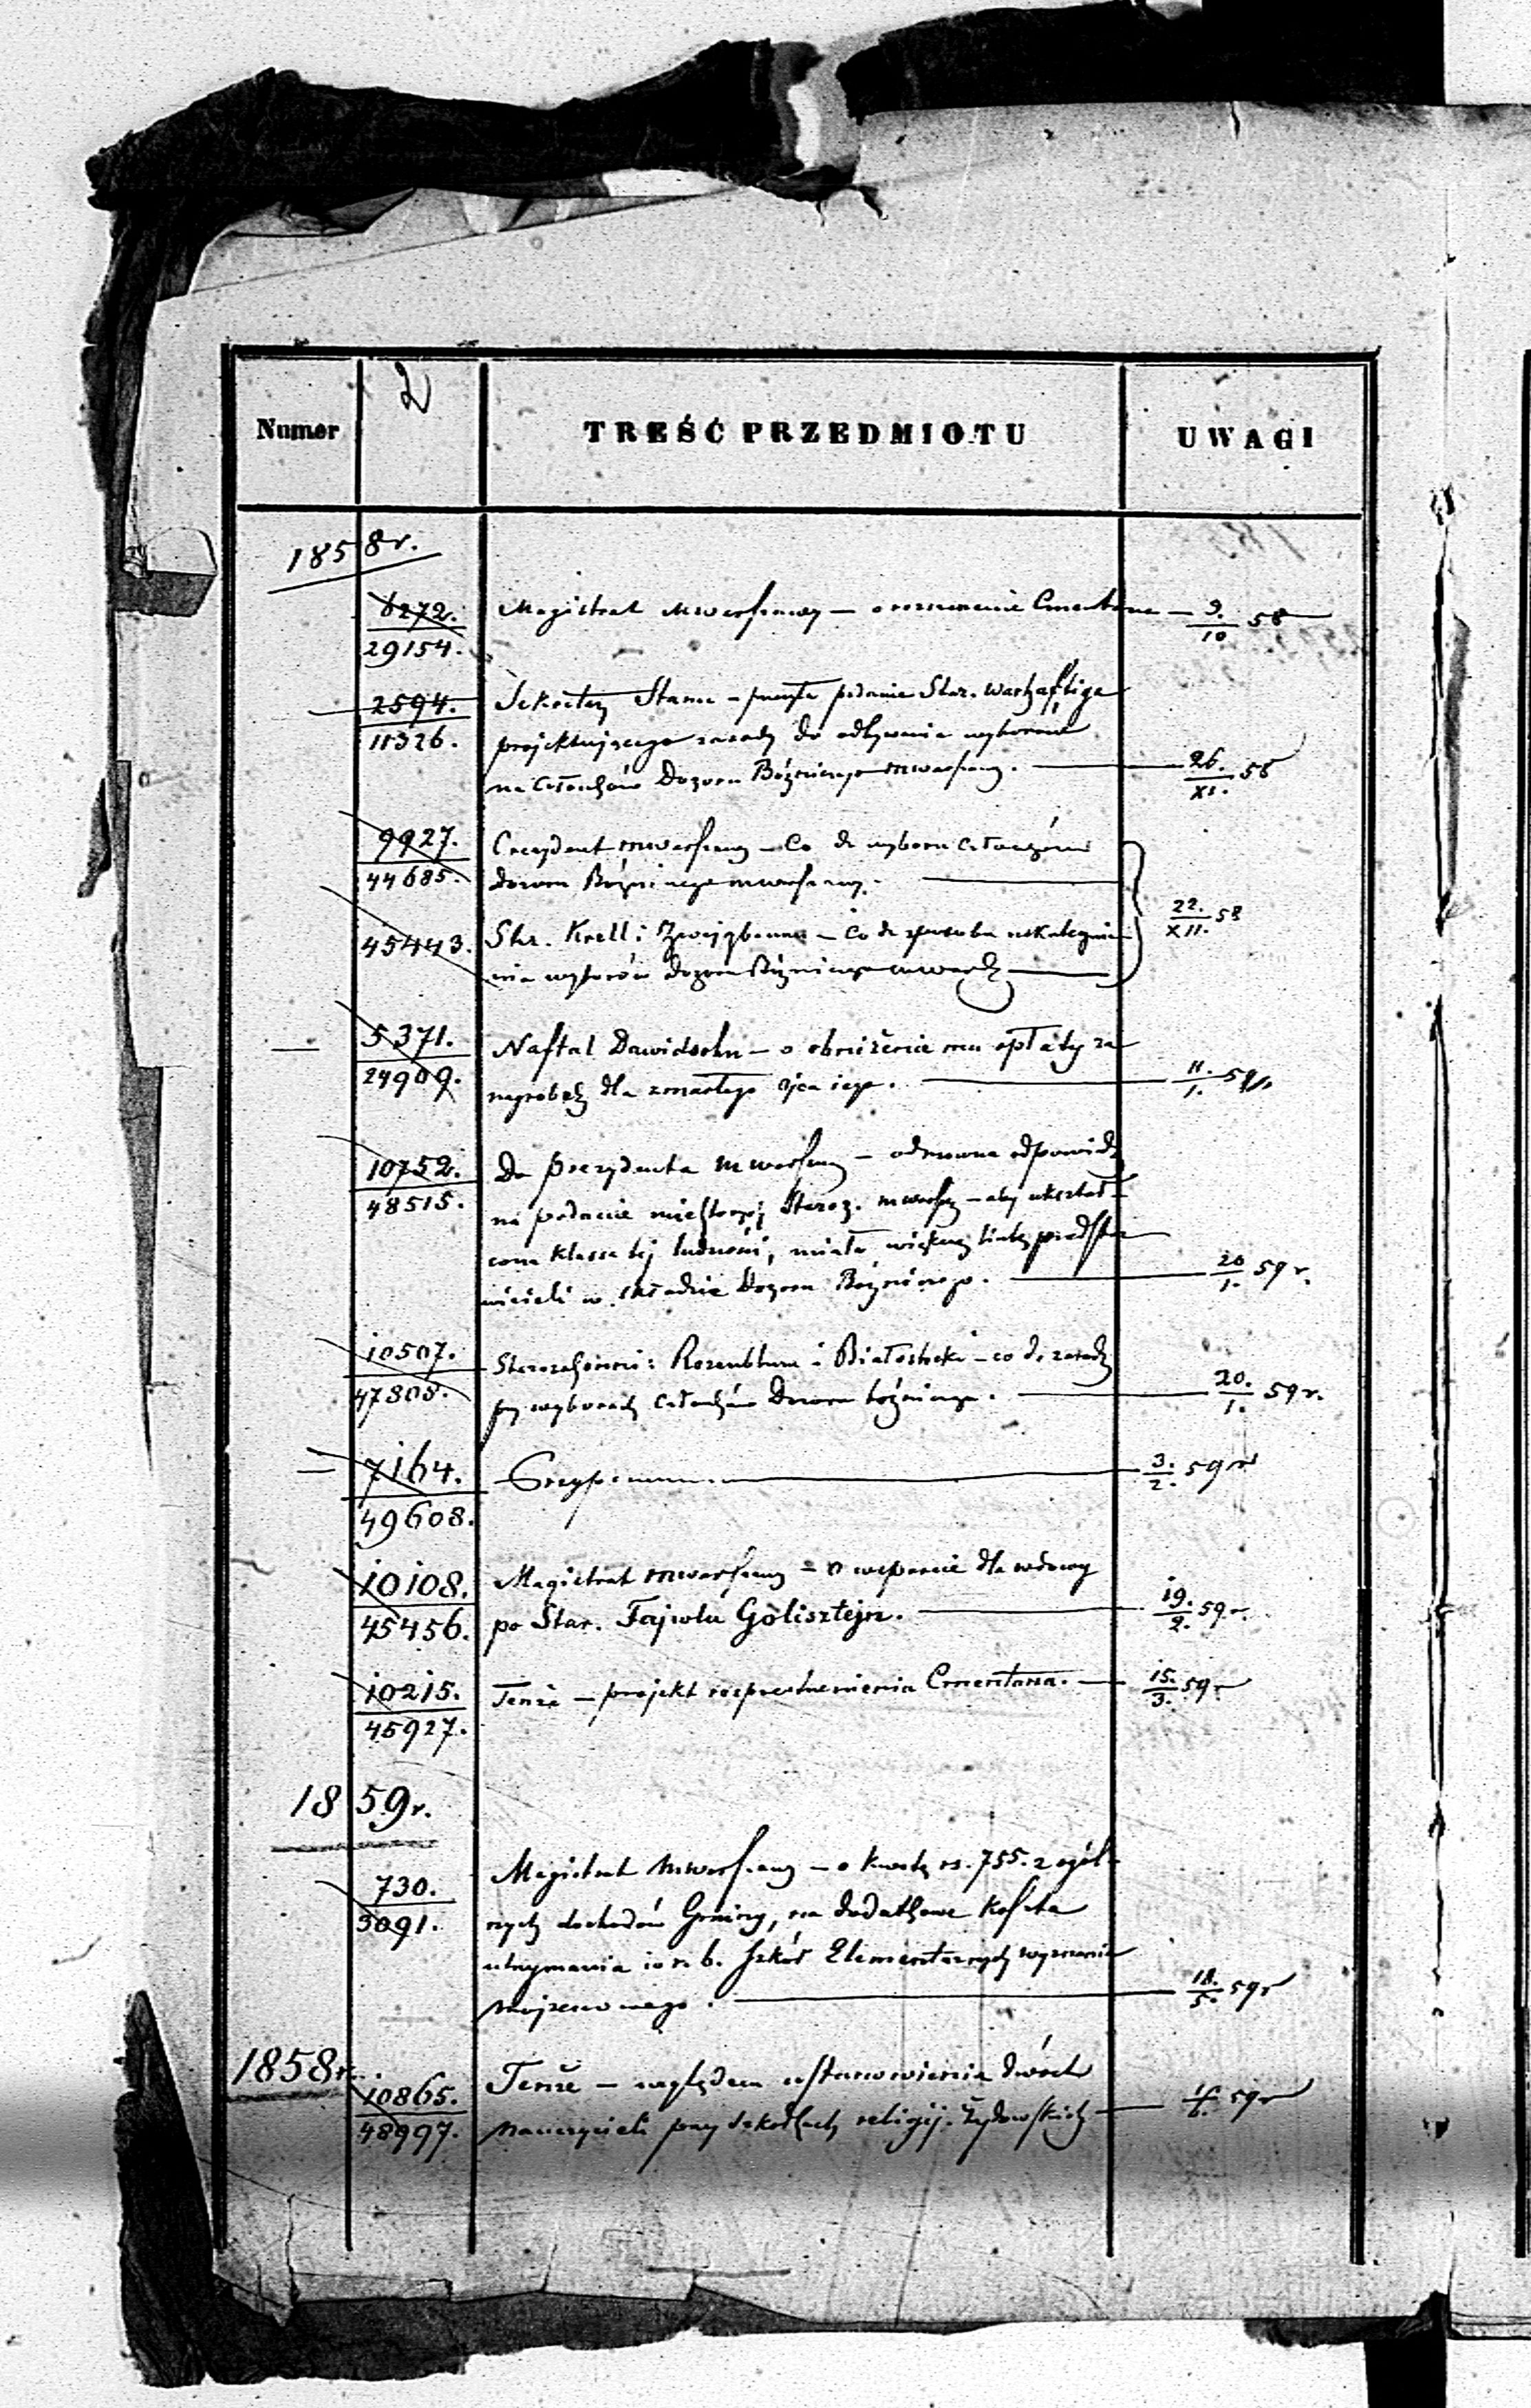 2
Numer TREŚĆ PRZEDMIOTU UWAGI
1858r.
6272. Magistrat mwarszawy — o Cmentarza — 9./10 58
29154.
2594. Sekretarz Stanu — podanie Star. Warszaftiga
11326. projektującego zasady do odbywania wyborów
na członków Dozoru Bóżniczego mwarszawy. — 26./XI. 58
9927. Prezydent mwarszawy — Co do wyboru członków
44685. dozoru Bóżniczego mwarszawy. —
22./XII. 58
45443. Star. Krell i — Co do sposobu uskutecznie
nia wyborów dozoru Bóżniczego —
— 5371. Naftal Dawidsohn — o obniżenie mu opłaty za
24909. nagrobek dla zmarłego ojca iego. — 11./1. 59r.
10752. Do prezydenta mwarszawy — odmowna odpowiedź
48515. na podanie Staroz. — aby ukształ-
cona klassa tej ludności, miała większą liczbę przedsta
wicieli w składzie Dozoru Bóżniczego. — 20/1. 59 r.
10507. Starozakonni: Rozenblum i Białostocki — co do zasady
47808. przy wyborach członków Dozoru bóżniczego. — 20./1. 59 r.
— 7164. — 3./2. 59 r
49608.
10108. Magistrat mwarszawy — o wsparcie dla wdowy
45456. po Star. Fajwlu Golisztejn. — 19./2. 59 r.
10215. Tenże — projekt rozprzestrzenienia Cmentarza. — 15./3. 59 r
45927.
1859r.
730. Magistrat mwarszawy — o kwotę rs. 755. z ogól-
3091. nych dochodów Gminy, na dodatkowe koszta
utrzymania w r. b. szkół Elementarnych wyznania
mojżeszowego. — 18./5. 59 r
1858r.
10865. Tenże — względem ustanowienia dwóch
48997. nauczycieli przy szkołach religij. Żydowskich — 59 r